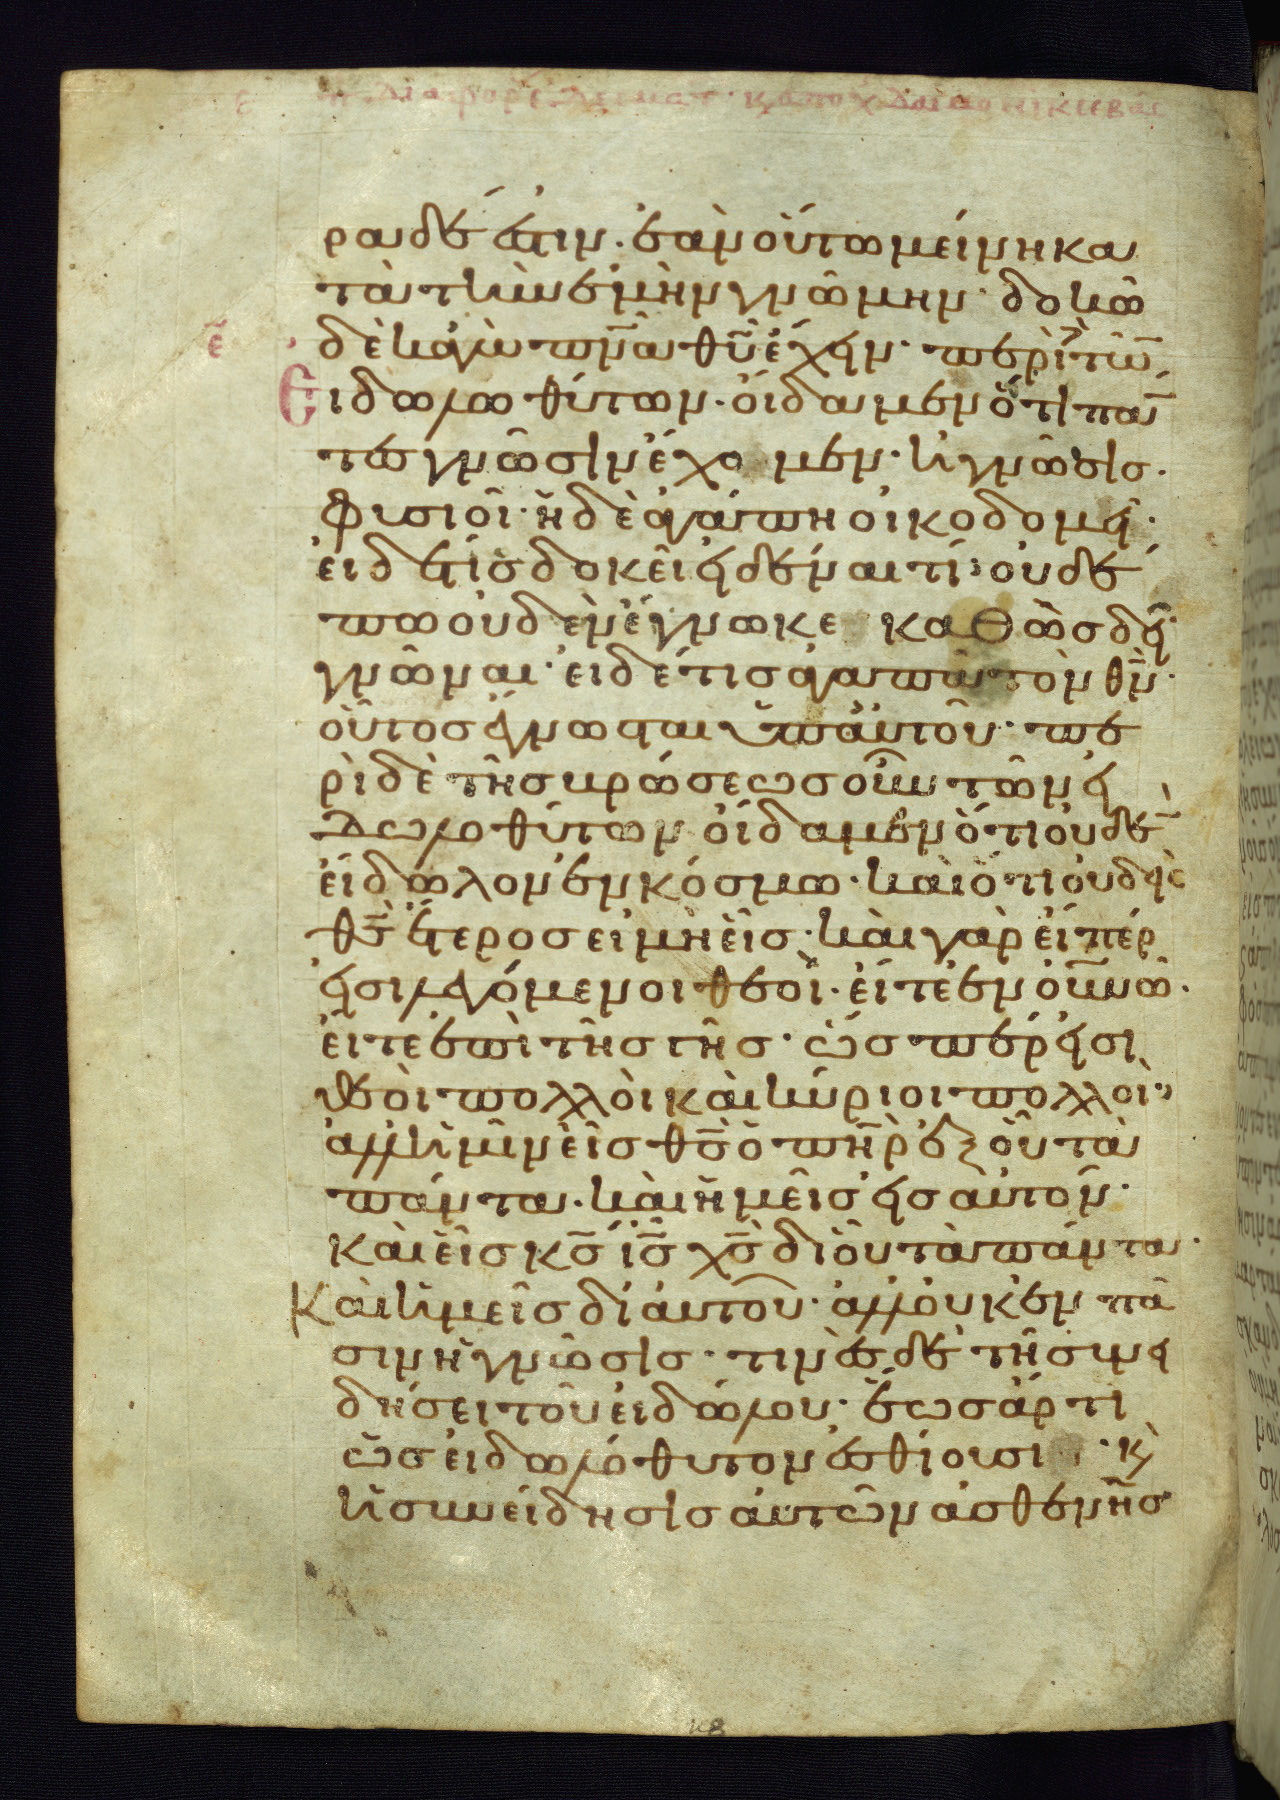 ραδέ ἐστιν· ἐὰν οὕτω μείνη κα
τὰ τὴν ἐμὴν γνώμην· δοκῶ
ε̄
δὲ κἀγὼ πν̅α θυ̅ ἔχειν· περὶ τῶ̅
Ειδωλοθύτων· οἴδαμεν ὅτι πά̅
τες γνῶσιν ἔχομεν· ἡ γνῶσις
φυσιοῖ· ἡ δὲ ἀγάπη οἰκοδομεῖ·
εἰ δέ τίς δοκεῖ εἰδέναι τί· οὐδέ
πω οὐδὲν ἔγνωκε καθὼς δεῖ
γνῶναι· εἰ δέ τις ἀγαπᾶ τὸν θν̅·
οὗτος ἔγνωσται ὑπ' αὐτοῦ· πε
ρὶ δὲ τῆς βρώσεως οὖν τῶν εἰ
δωλοθύτων οἴδαμεν ὅτι οὐδὲ̅
εἴδωλον ἐν κόσμω· καὶ ὅτι οὐδεὶς
θς̅ ἕτερος εἰ μὴ εἷς· καὶ γὰρ εἴπερ
εἰσι λεγόμενοι θεοὶ· εἴτε ἐν οὐ̅νῶ·
εἴτε ἐπὶ τῆς γῆς· ὥσπερ εἰσι
θεοὶ πολλοὶ καὶ κύριοι πολλοὶ·
ἀλλ' ἡμῖν εἷς θς̅ ὁ πη̅ρ ἐξ οὗ τὰ
πάντα· καὶ ἡμεῖς εἰς αὐτόν·
καὶ εἷς κς̅ ις̅ χς̅ δι' οὗ τὰ πάντα·
Καὶ ἡμεῖς δι' αὐτοῦ· ἀλλ' οὐκ ἐν πᾶ
σιν ἡ γνῶσις· τινὲς δὲ τῆ συνει
δήσει τοῦ εἰδώλου· ἕως ἄρτι
ὡς εἰδωλόθυτον ἐσθίουσι· κ̀
ἡ συνείδησις αὐτῶν ἀσθενὴς